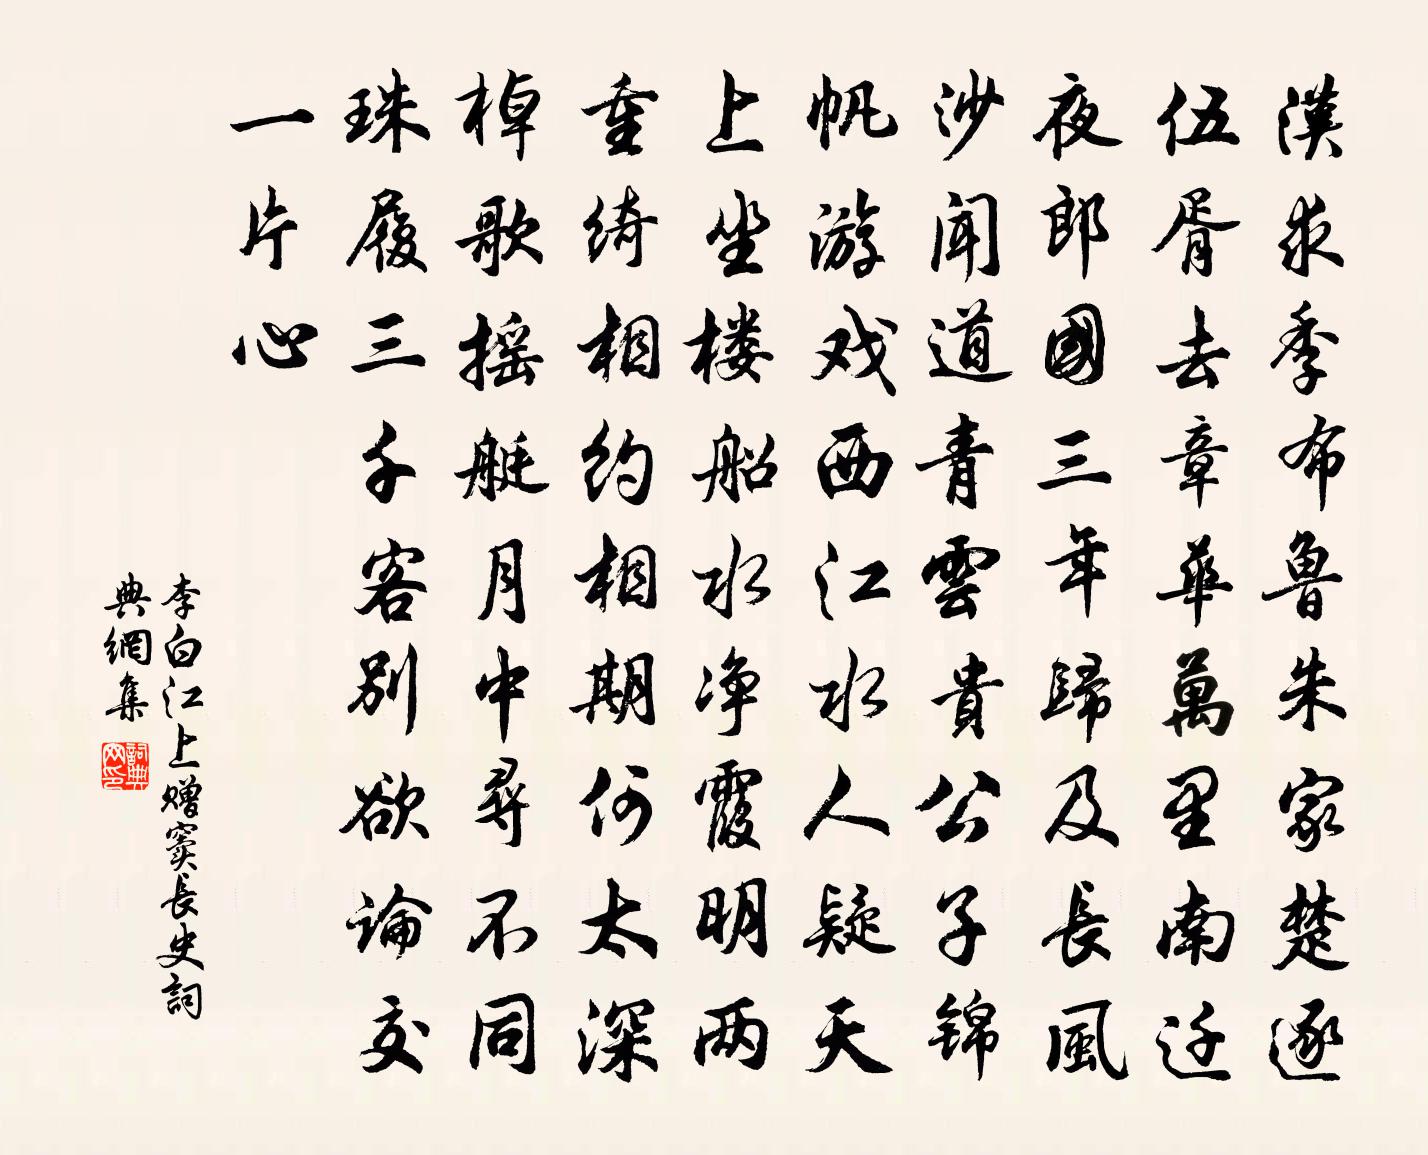 漢求季布魯朱家楚逐
伍胥去章華萬里南迁
夜郎國三年歸及長風
沙闻道青雲貴公子锦
帆游戏西江水人疑天
上坐楼船水净霞明两
重绮相约相期何太深
棹歌摇艇月中尋不同
珠履三千客别欲論交
一片心
李白江上赠窦長史詞
典網集
詞典网印